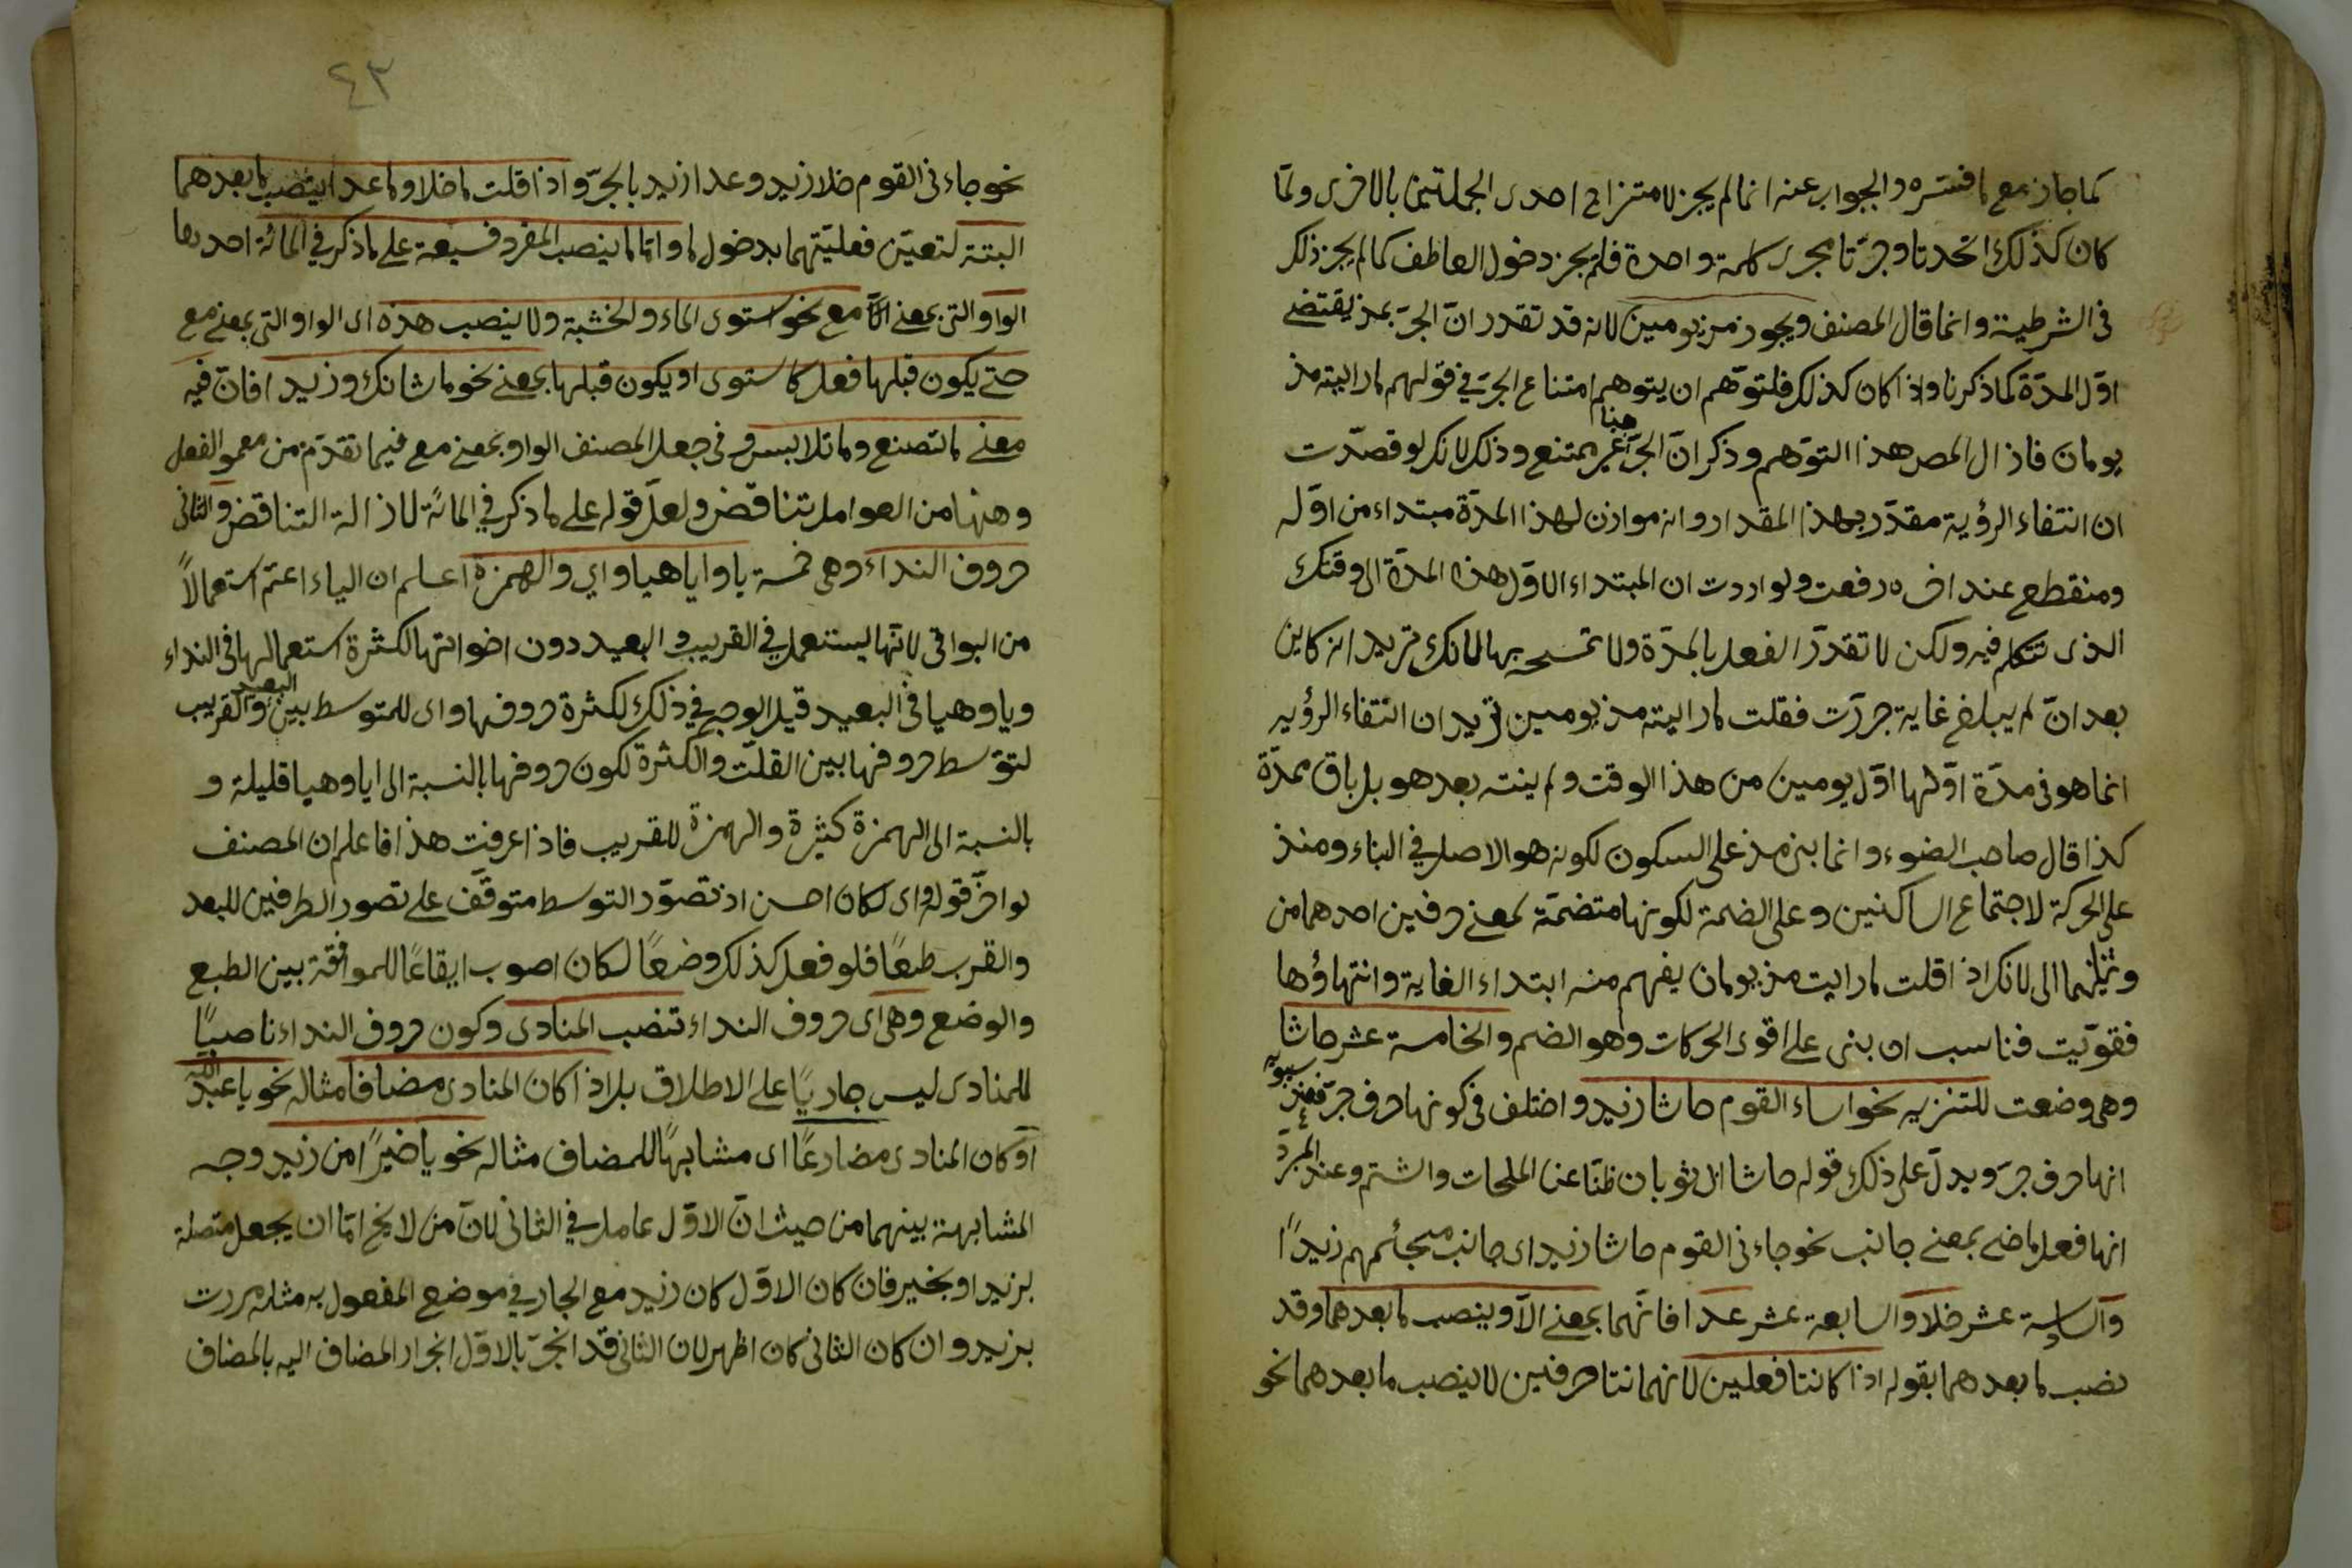 كما جاز مع ما فسّره والجواب عنه انما لم يجز لامتزاج احدى الجملتين بالاخرى ولمّا
كان كذلك اتحدتا وجرتا مجرى كلمة واحدة فلم يجز دخول العاطف كما لم يجز ذلك
فى الشرطية وانما قال المصنف ويجوز مذ يومين لانه قد تقدر انّ الجرّ بمذ يقتضى
اوّل المدّة كما ذكرنا واذا كان كذلك فلتوّهم ان يتوهم امتناع الجرّ فى قولهم ما رايته مذ
يومان فازال المص هذا التوّهم وذكر انّ الجرّ هنا غير ممتنع وذلك لانك لو قصدت
ان انتفاء الرؤية مقدّر بهذا المقدار وانه موازن لهذا المدّة مبتداء من اوّله
ومنقطع عند اخره رفعت ولو اردت ان المبتداء الاوّل هذه المدّة الى وقتك
الذى تتكلم فيه ولكن لا تقدرّ الفعل بالمدّة ولا تمسحه بها لانك تريد انه كاين
بعد انّ لم يبلغ غاية جررّت فقلت ما رايته مذ يومين تريد ان انتفاء الرؤيه
انما هو فى مدّة اوّلها اوّل يومين من هذا الوقت ولم ينته بعد هو بل باق ممدّة
كذا قال صاحب الضوء وانما بنى مذ على السكون لكونه هو الاصل فى البناء ومنذ
على الحركة لاجتماع الساكنين وعلى الضمة لكونها متضمّة لمعنى حرفين احدهما من
وثانيهما الى لانك اذا قلت ما رايت مذ يومان يفهم منه ابتداء الغاية وانتهاؤها
فقوّيت فناسب ان بنى على اقوى الحركات وهو الضم والخامسة عشر حاشا
وهى وضعت للتنزيه نحو اساء القوم حاشا زيد واختلف فى كونها حرف جرّ فعند سيبويه
انها حرف جرّ ويدلّ على ذلك قوله حاشا ابى ثوبان ظنّا عن الملحات والشتم وعند المبرّد
انها فعل ماضى بمعنى جانب نحو جاءنى القوم حاشا زيد اى جانب مجئهم زيداً
والسادسة عشر خلا والسابعة عشر عدا فانّهما بمعنى الاّ وينصب ما بعدهما وقد
نصب ما بعدهما بقوله اذا كانتا فعلين لانهما كانتا حرفين لا ينصب ما بعدهما نحو
٤٣
نحو جاءنى القوم خلا زيد وعدا زيد بالجرّ واذا قلت ما خلا وما عدا ينتصب ما بعدهما
البتة لتعيّن فعليّتهما بدخول ما وامّا ما ينصب المفرد فسبعة على ما ذكر فى المائة احديها
الواو التى بمعنى مع نحو استوى الماء والخشبة ولا ينصب هذه اى الواو التى بمعنى مع
حتى يكون قبلها فعل كاستوى او يكون قبلها بمعنى نحو ما شانك وزيدا فانّ فيه
معنى ما تصنع وما تلابس وفى جعل المصنف الواو بمعنى مع فيما تقدّم من معمول الفعل
وههنا من العوامل تناقض ولعلّ قوله على ما ذكر فى المائة لازالة التناقض والثانى
حروف النداء وهى خمسة يا وايا هيا واي والهمزة اعلم ان الياء اعمّ استعمالاً
من البواقى لانّها يستعمل فى القريب والبعيد دون اخواتها لكثرة استعمالها فى النداء
ويا وهيا فى البعيد قيل الوجه فى ذلك لكثرة حروفها واى للمتوسط بين البعيد والقريب
لتوّسط حروفها بين القلّت والكثرة لكون حروفها بالنسبة الى ايا وهيا قليلة و
بالنسبة الى الهمزة كثيرة والهمزة للقريب فاذا عرفت هذا فاعلم ان المصنف
لو اخّر قوله واى لكان احسن اذ تصوّر التوسط متوقّف على تصور الطرفين للبعد
والقرب طبعًا فلو فعل كذلك وضعًا لكان اصوب ايقاعًا للموافقة بين الطبع
والوضع وهى اى حروف النداء تنصب المنادى وكون حروف النداء ناصبًا
للمنادى ليس جاريًا على الاطلاق بل اذا كان المنادى مضافا مثاله نحو يا عبد الله
او كان المنادى مضارعًا اى مشابهًا للمضاف مثاله نحو يا خيرًا من زيد وجه
المشابهة بينهما من حيث انّ الاوّل عامل فى الثانى لانّ من لا يخ امّا ان يجعل متصلة
بزيد او بخير فان كان الاوّل كان زيد مع الجار فى موضع المفعول به مثل مررت
بزيد وان كان الثانى كان اظهر لان الثانى قد انجرّ بالاوّل انجرار المضاف اليه بالمضاف